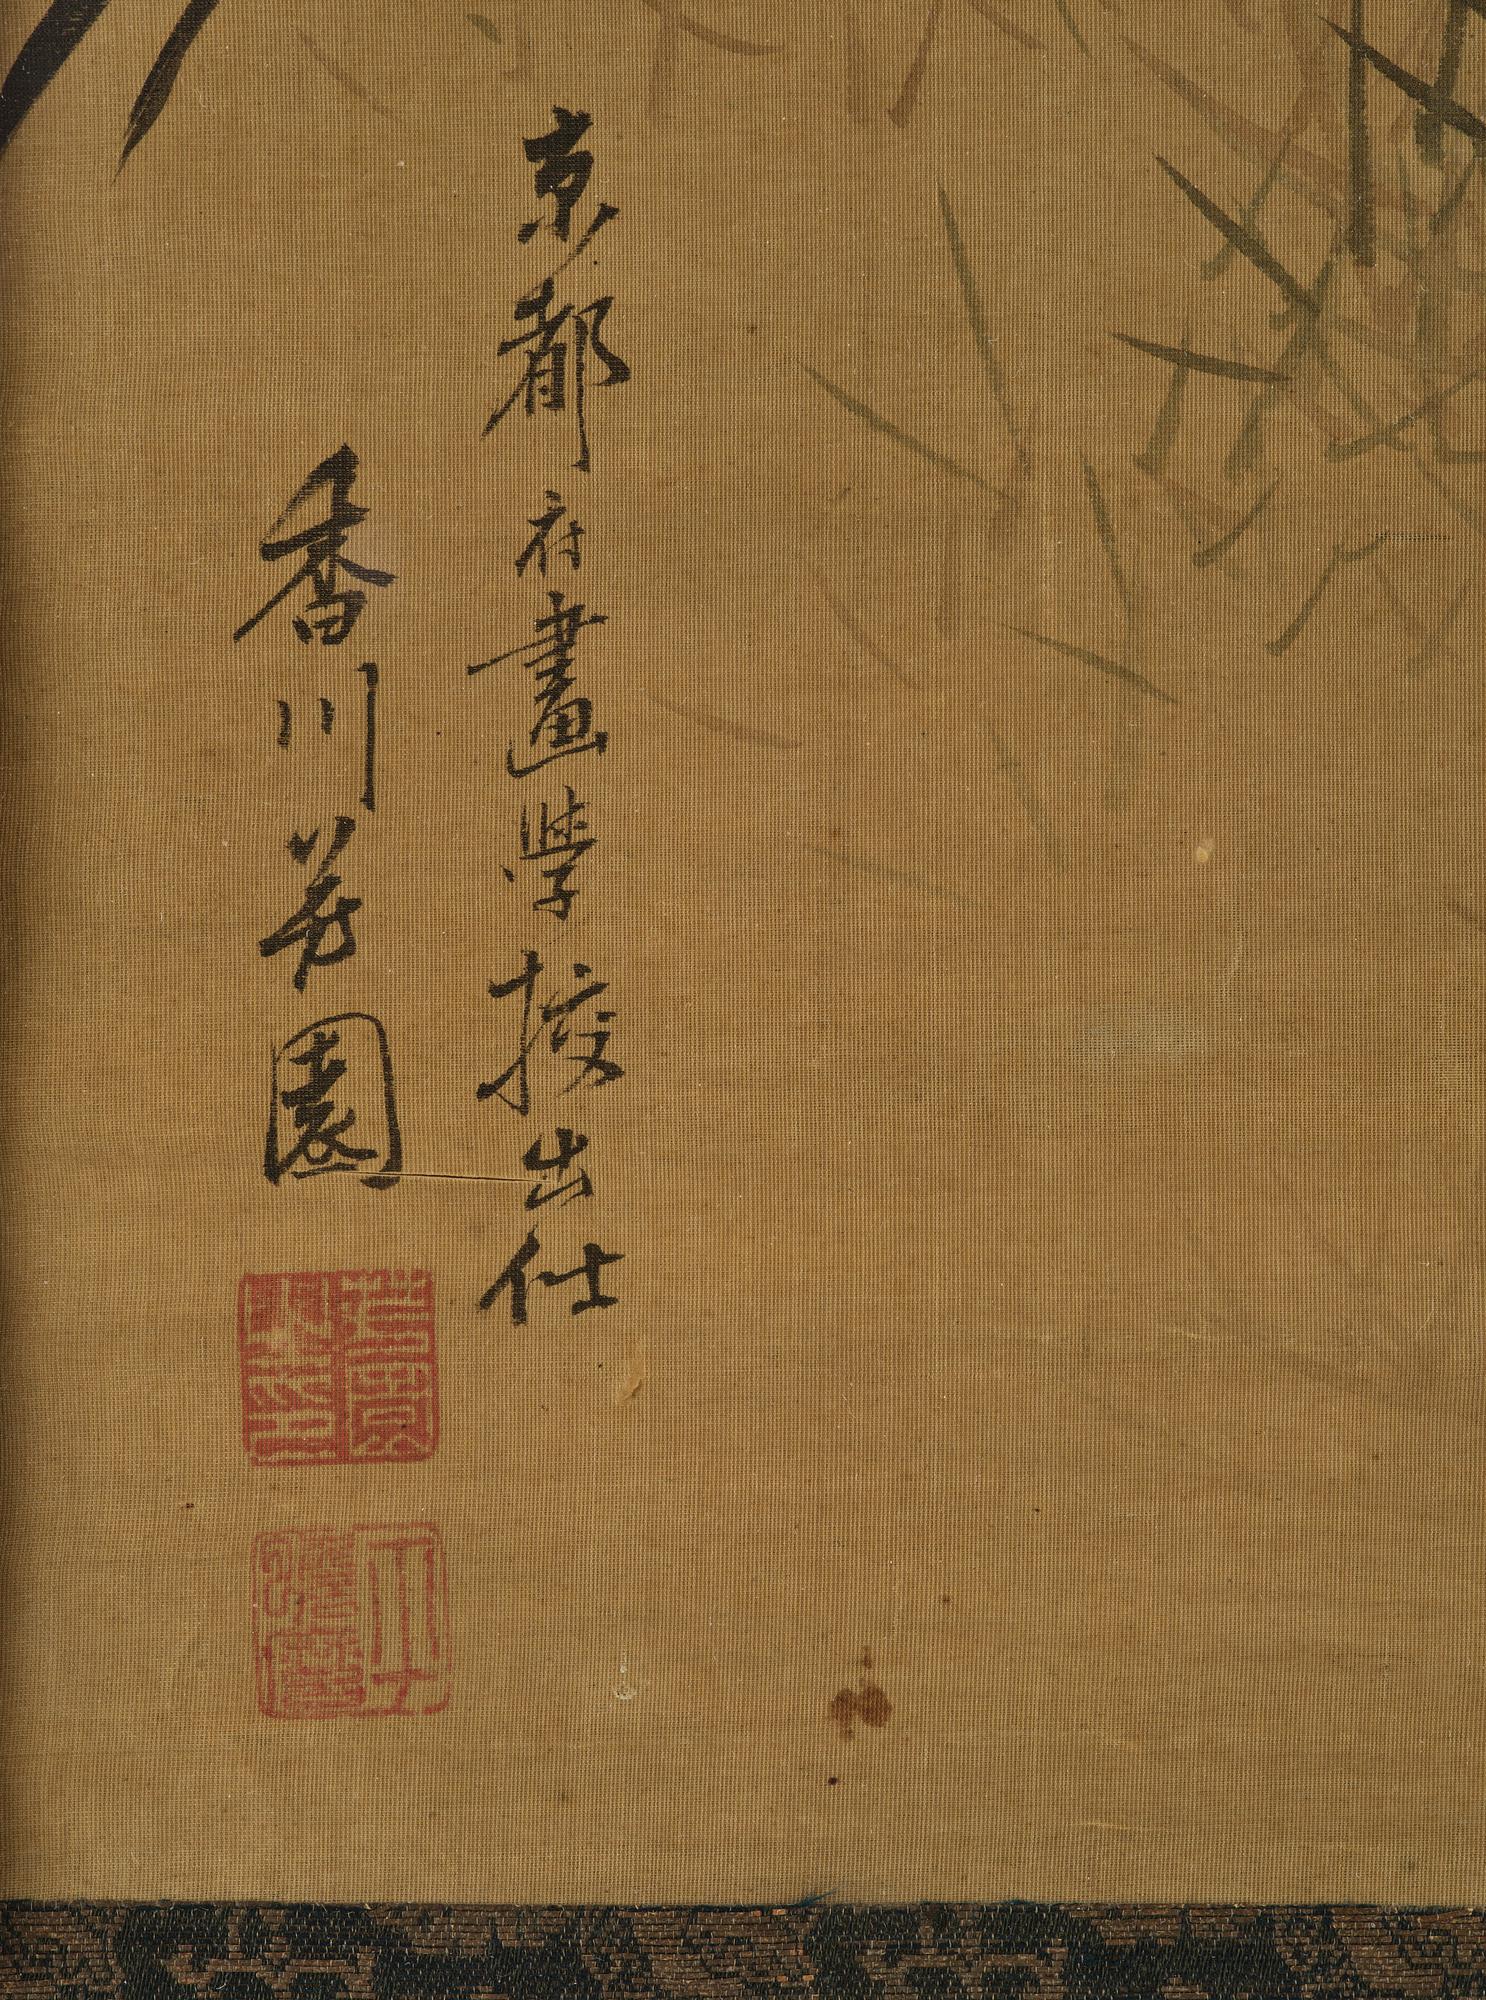 京都府畫學挍出仕
香川芳園